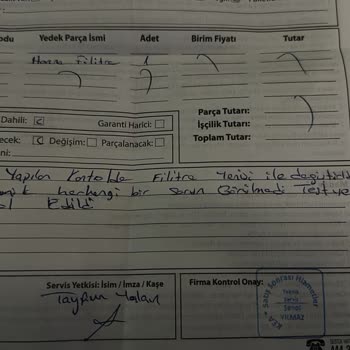 odu Yedek Parça İsmi Adet Birim Fiyatı Tutar
Hava Filitre 1
Dahili: C Garanti Harici:
ecek: C Değişim: Parçalanacak:
ni:
Parça Tutarı:
İşçilik Tutarı:
Toplam Tutar:
Yapılan Kontolde Filitre Yenisi ile değiştirildi
herhangi bir Sorun Görülmedi Test ve
Edildi
Servis Yetkisi: İsim / İmza / Kaşe
Firma Kontrol Onay:
KEA - Satış Sonrası Hizmetler
Teknik
Servis
Şenol
YILMAZ